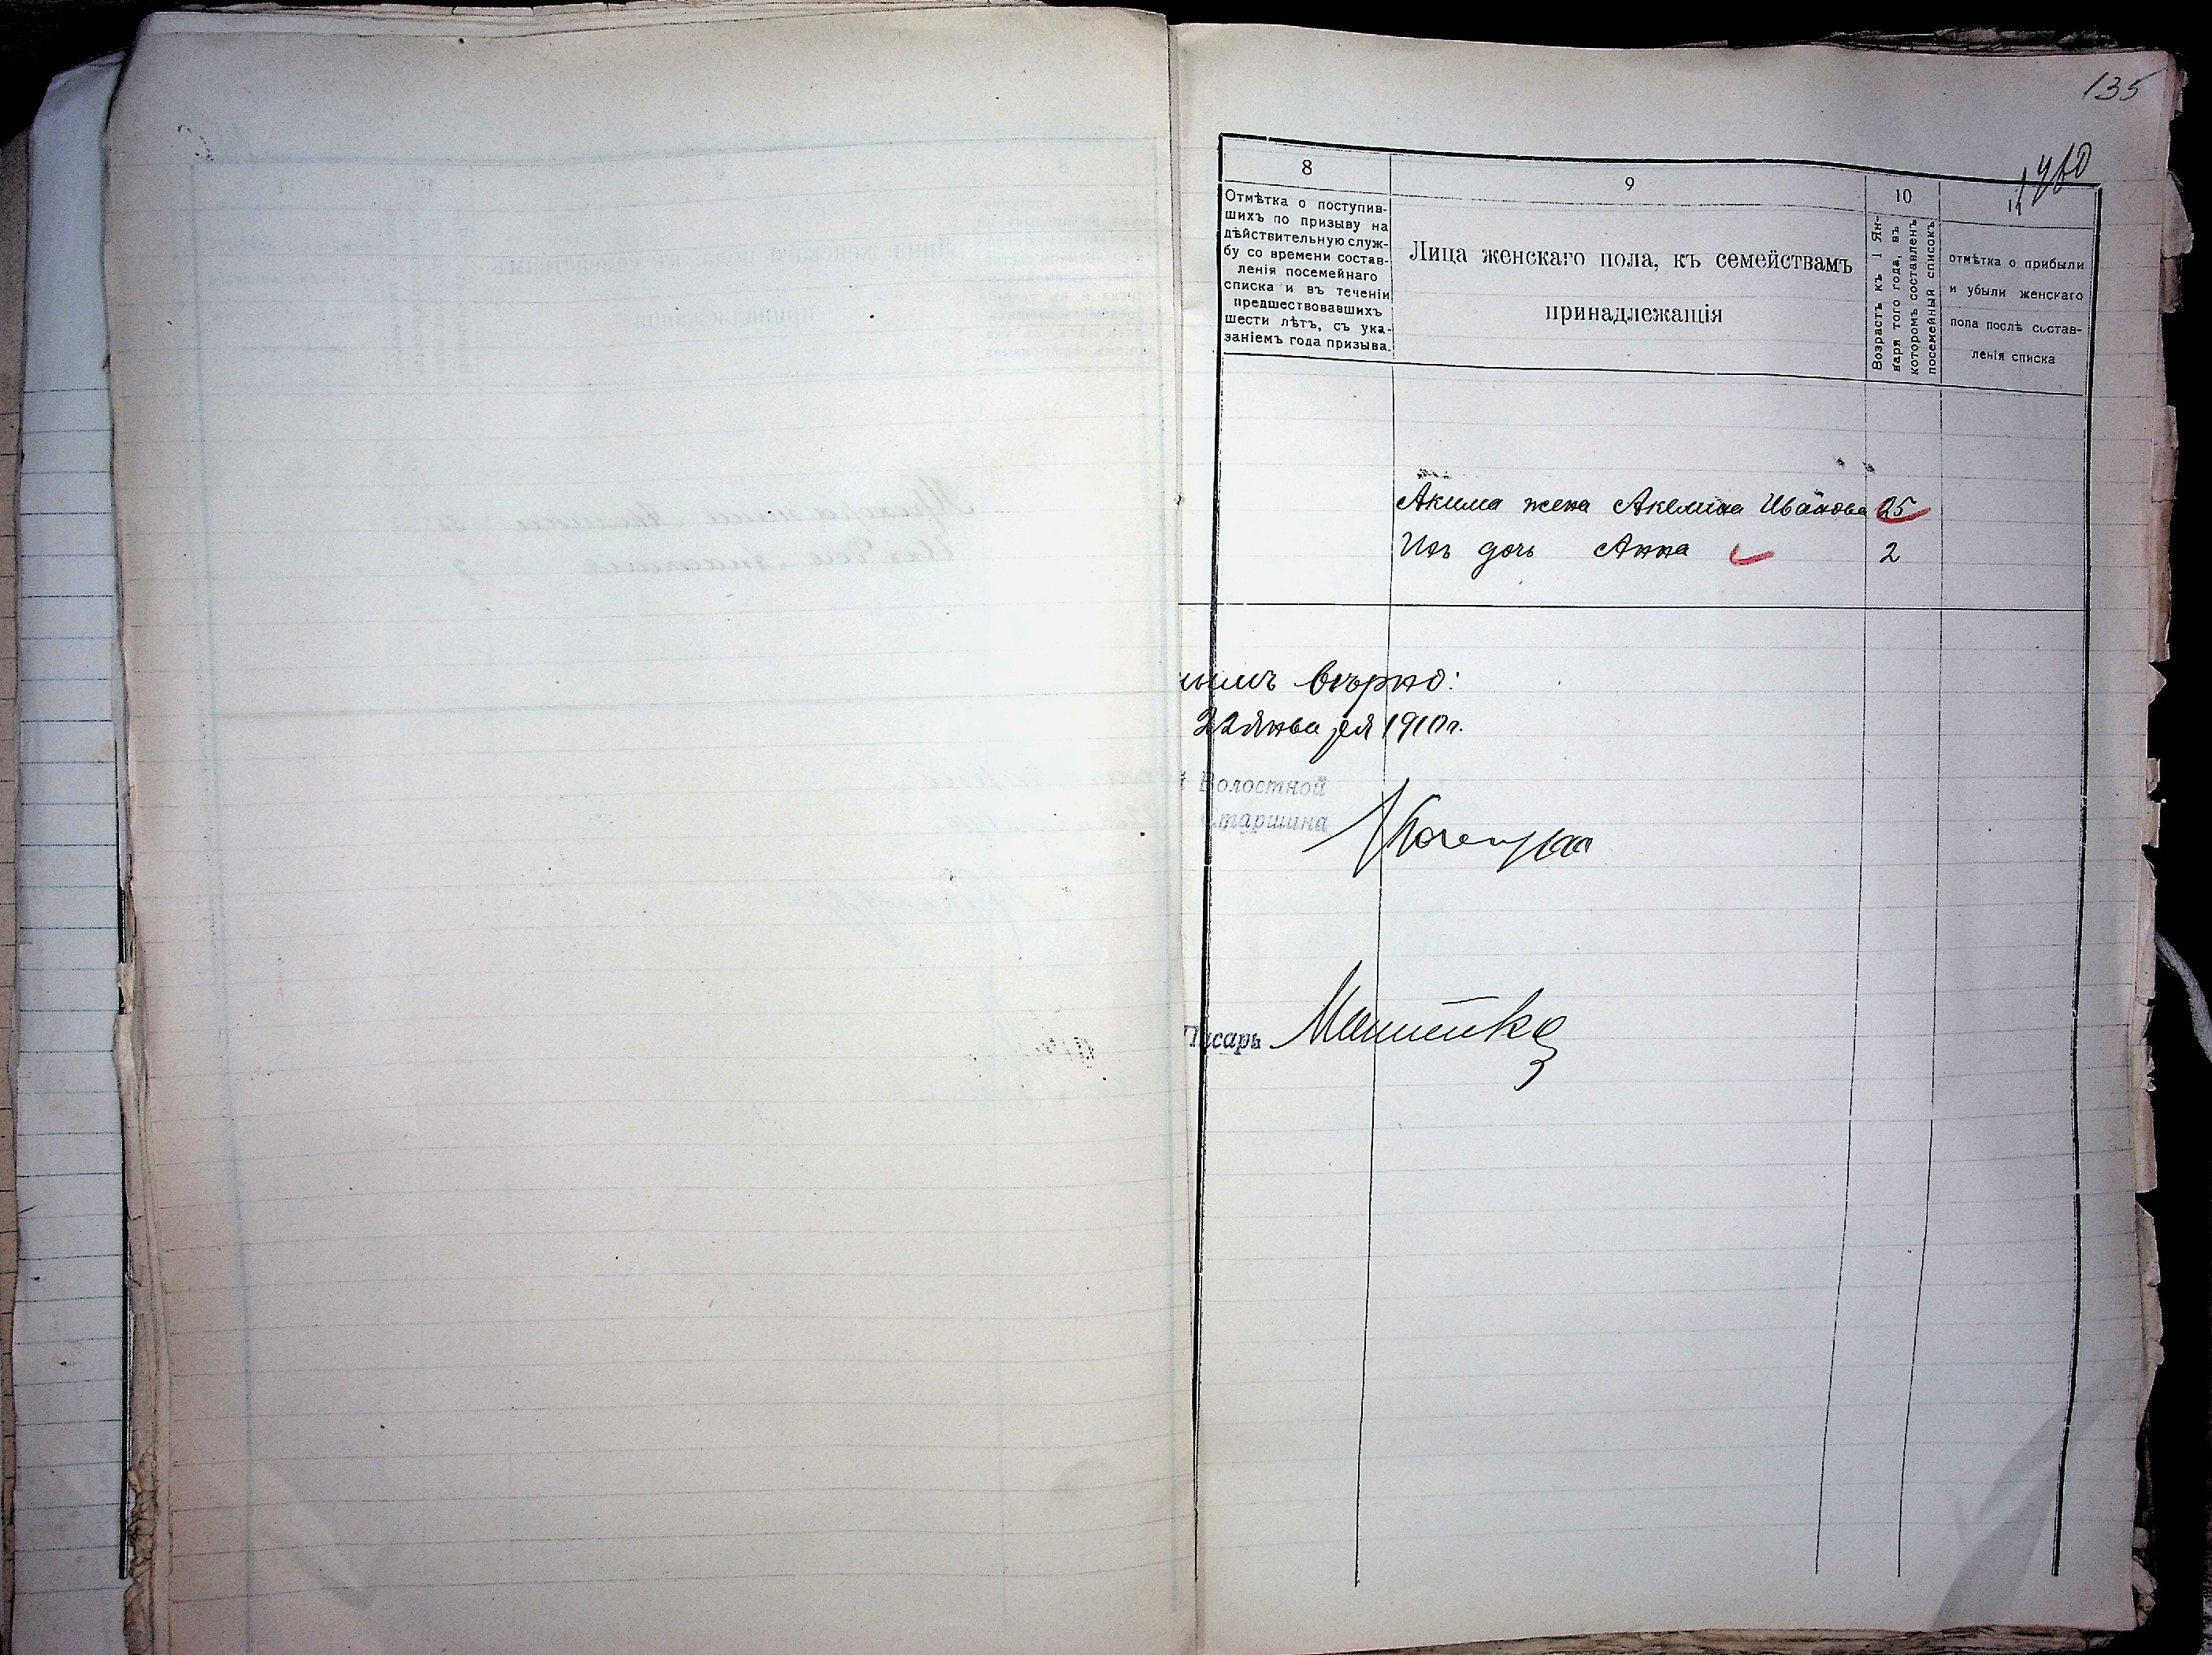 135
8
Отмѣтка о поступив-
шихъ по призыву на
дѣйствительную служ-
бу со времени состав-
ленія посемейнаго
списка и въ теченіи
предшествовавшихъ
шести лѣтъ, съ ука-
заніемъ года призыва.
9
Лица женскаго пола, къ семействамъ
принадлежащія
10
Возрастъ къ 1 Ян-
варя того года, въ
которомъ составленъ
посемейный списокъ
11
отмѣтка о прибыли
и убыли женскаго
пола послѣ состав-
ленія списка
Акима жена Акелина Иванова 25
Ихъ дочь Анна 2
вѣрно:
22 Января 1910 г.
й Волостной
Старшина
Писарь